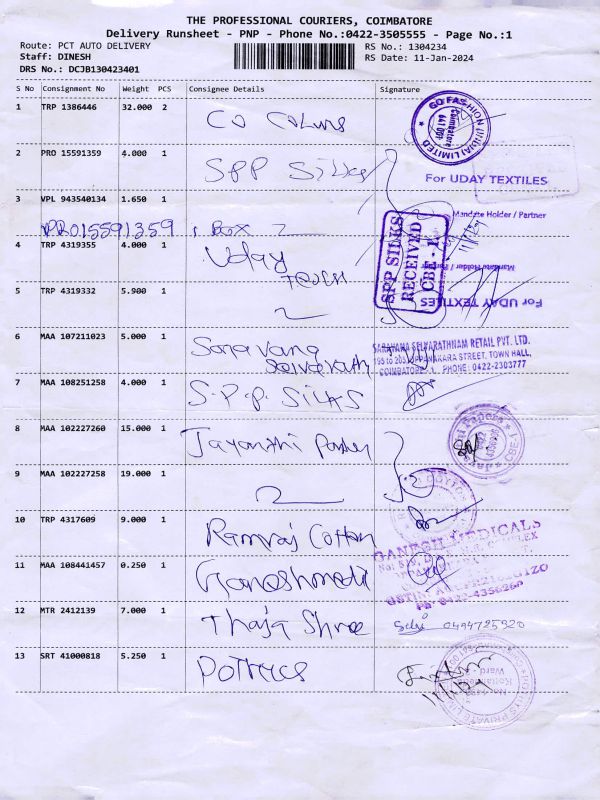 THE PROFESSIONAL COURIERS, COIMBATORE
Delivery Runsheet - PNP - Phone No.:0422-3505555 - Page No.:1
Route: PCT AUTO DELIVERY
RS No.: 1304234
Staff: DINESH
RS Date: 11-Jan-2024
DRS No.: DCJB130423401
S No Consignment No Weight PCS Consignee Details Signature
1 TRP 1386446 32.000 2 CO Colours
GO FASHION (INDIA) LIMITED
Coimbatore
641 001
2 PRO 15591359 4.000 1 SPP Silks
For UDAY TEXTILES
3 VPL 943540134 1.650 1
Mandate Holder / Partner
VPR015591359 1 Box
4 TRP 4319355 4.000 1 Uday
SPP SILKS
RECEIVED
CBE - 1.
Mandate Holder / Partner
For UDAY TEXTILES
5 TRP 4319332 5.900 1
6 MAA 107211023 5.000 1 Saravana
SARAVANA SELVARATHNAM RETAIL PVT. LTD.
195 to 205, OPPANAKARA STREET, TOWN HALL,
COIMBATORE -1. PHONE: 0422-2303777
7 MAA 108251258 4.000 1 S.P.P. SILKS
8 MAA 102227260 15.000 1 Jayanthi
9 MAA 102227258 19.000 1
10 TRP 4317609 9.000 1 Ramraj Cotton
GANESH MEDICALS
11 MAA 108441457 0.250 1 Ganeshmedi
12 MTR 2412139 7.000 1 Thaja Shree
13 SRT 41000818 5.250 1 Pothys